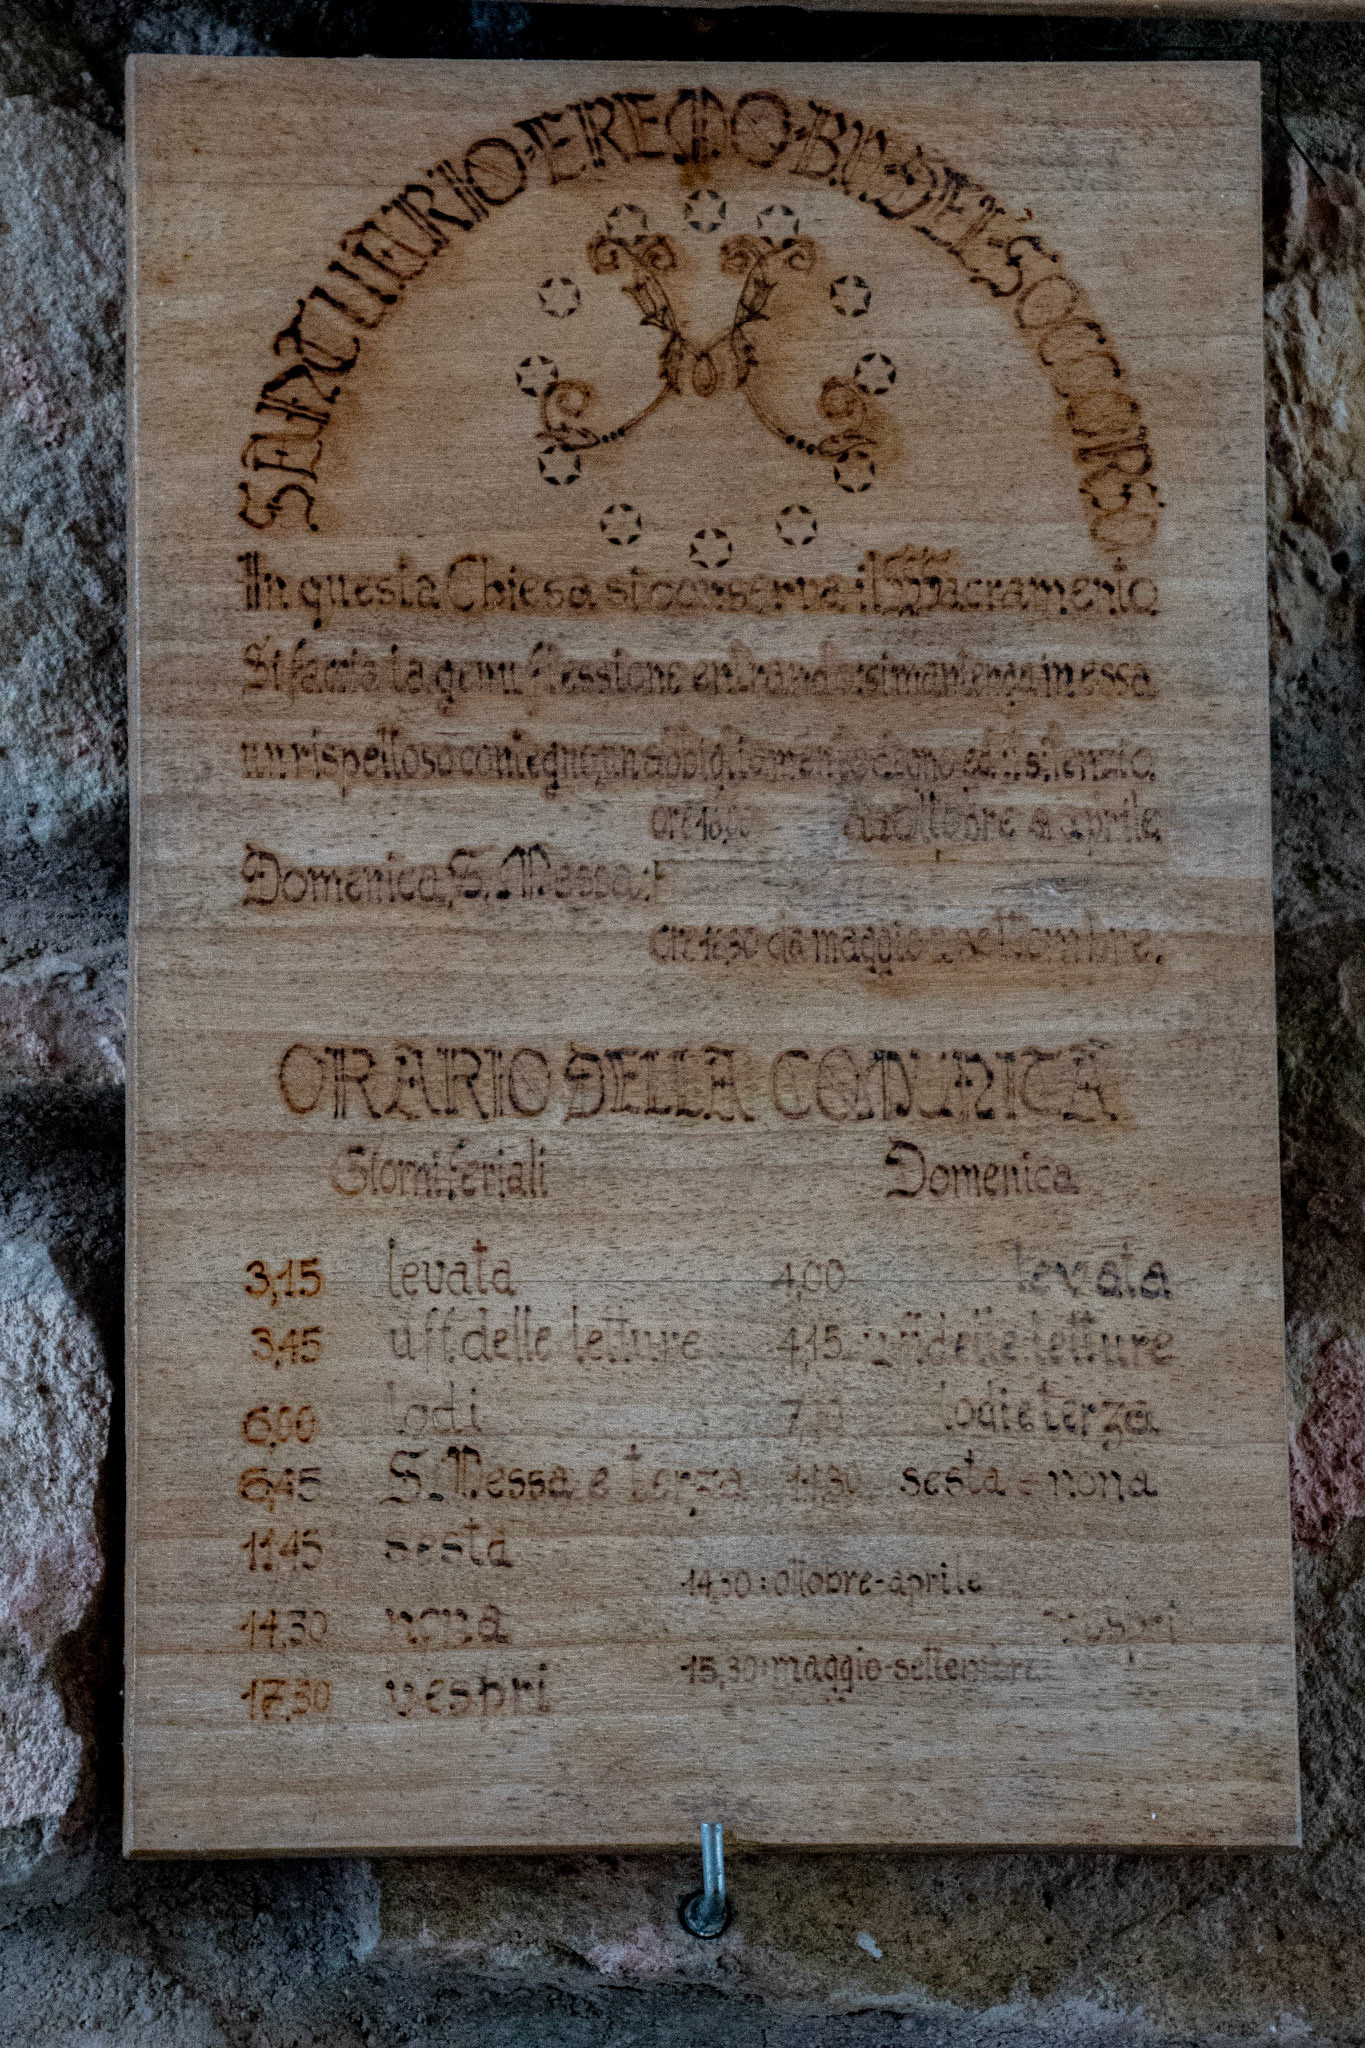 SANTUARIO·EREMO·B.V.·DEL·SOCCORSO
In questa Chiesa si conserva il SS. Sacramento
Si faccia la genuflessione entrando: si mantenga in essa
un rispettoso contegno, un abbigliamento degno ed il silenzio.
ore 16,00 da ottobre a aprile.
Domenica, S. Messa:
ore 16,30 da maggio a settembre.
ORARIO DELLA COMUNITÀ
Giorni feriali Domenica
3,15 levata 4,00 levata
3,45 uff. delle letture 4,15 uff. delle letture
6,00 lodi lodi e terza
6,45 S. Messa e terza 11,30 sesta - nona
11,45 sesta
14,30: ottobre-aprile
14,30 nona vespri
15,30: maggio-settembre
17,30 vespri